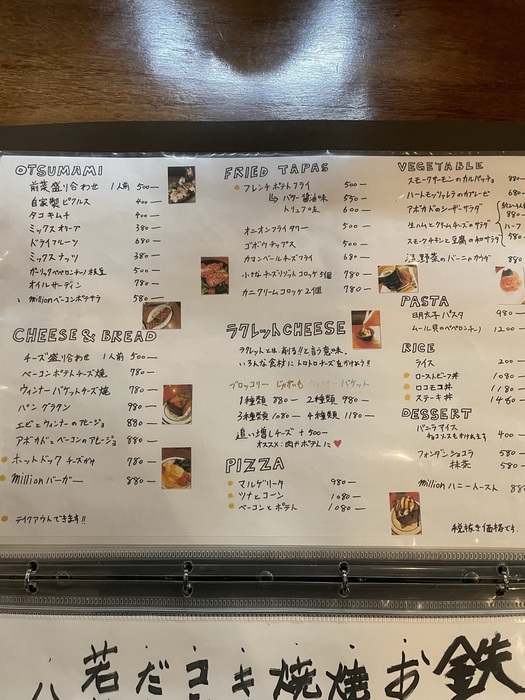 OTSUMAMI
前菜盛り合わせ 1人前 500―
自家製ピクルス 400―
タコキムチ 400―
ミックスオリーブ 380―
ドライフルーツ 680―
ミックスナッツ 380―
ガーリックペペロンチーノ枝豆 500―
オイルサーディン 780―
millionベーコンポテサラ 580―
CHEESE & BREAD
チーズ盛り合わせ 1人前 500―
ベーコンポテトチーズ焼 780―
ウィンナーバケットチーズ焼 780―
パングラタン 980―
エビとウィンナーのアヒージョ 880―
アボカドとベーコンのアヒージョ 880―
ホットドック チーズがけ 780―
Millionバーガー 880―
テイクアウトできます!!
FRIED TAPAS
フレンチポテトフライ 500―
↳ バター醤油味 550
トリュフ味 600
オニオンフライタワー 500―
ゴボウチップス 500―
カマンベールチーズフライ 680―
小さなチーズリゾットコロッケ 5個 780―
カニクリームコロッケ2個 780―
ラクレットCHEESE
ラクレットとは、削る!!と言う意味。
いろんな食材にトロトロチーズをかけよう!!
ブロッコリー じゃがいも ウインナー バケット
1種類 880― 2種類 980―
3種類 1080― 4種類 1180―
追い増しチーズ + 500―
オススメ:肉やポテトに♥
PIZZA
マルゲリータ 980―
ツナとコーン 1080―
ベーコンとポテト 1080―
VEGETABLE
スモークサーモンのカルパッチョ 880
ハートモッツァレラのカプレーゼ 680
アボカドのシーザーサラダ
生ハムとクリームチーズのサラダ 880―
スモークチキンと豆腐の和サラダ ハーフ 580
温野菜のバーニャカウダ 880
PASTA
明太子パスタ 980―
ムール貝のペペロンチーノ 1200―
RICE
ライス 200―
ローストビーフ丼 1080―
ロコモコ丼 1180
ステーキ丼 1480
DESSERT
バニラアイス 400―
チョコソースもかけれます
フォンダンショコラ 580―
抹茶 580―
Million ハニートースト 880
税抜き価格です。
若だコキ焼焼お鉄